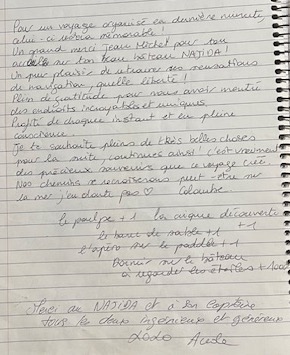 Pour un voyage organisé en dernière minute,
celui-ci restera mémorable !
Un grand merci Jean Michel pour ton
accueil sur ton beau bâteau NAJIDA !
Un pur plaisir de retrouver ses sensations
de navigation, quelle liberté !
Plein de gratitude pour nous avoir montré
des endroits incroyables et uniques.
Profité de chaque instant et en pleine
conscience.
Je te souhaite pleins de très belles choses
pour la suite, continues ainsi ! c'est vraiment
des précieux souvenirs que ce voyage crée.
Nos chemins se recroiserons peut-être sur
la mer j'en doute pas ♡
le poulpe +1 la crique découverte +1
le banc de sable +1
l'apéro sur le paddle +1
Dormir sur le bâteau
à regarder les étoiles +1000
Merci au NAJIDA et à son Capitaine
tous les deux ingénieux et généreux